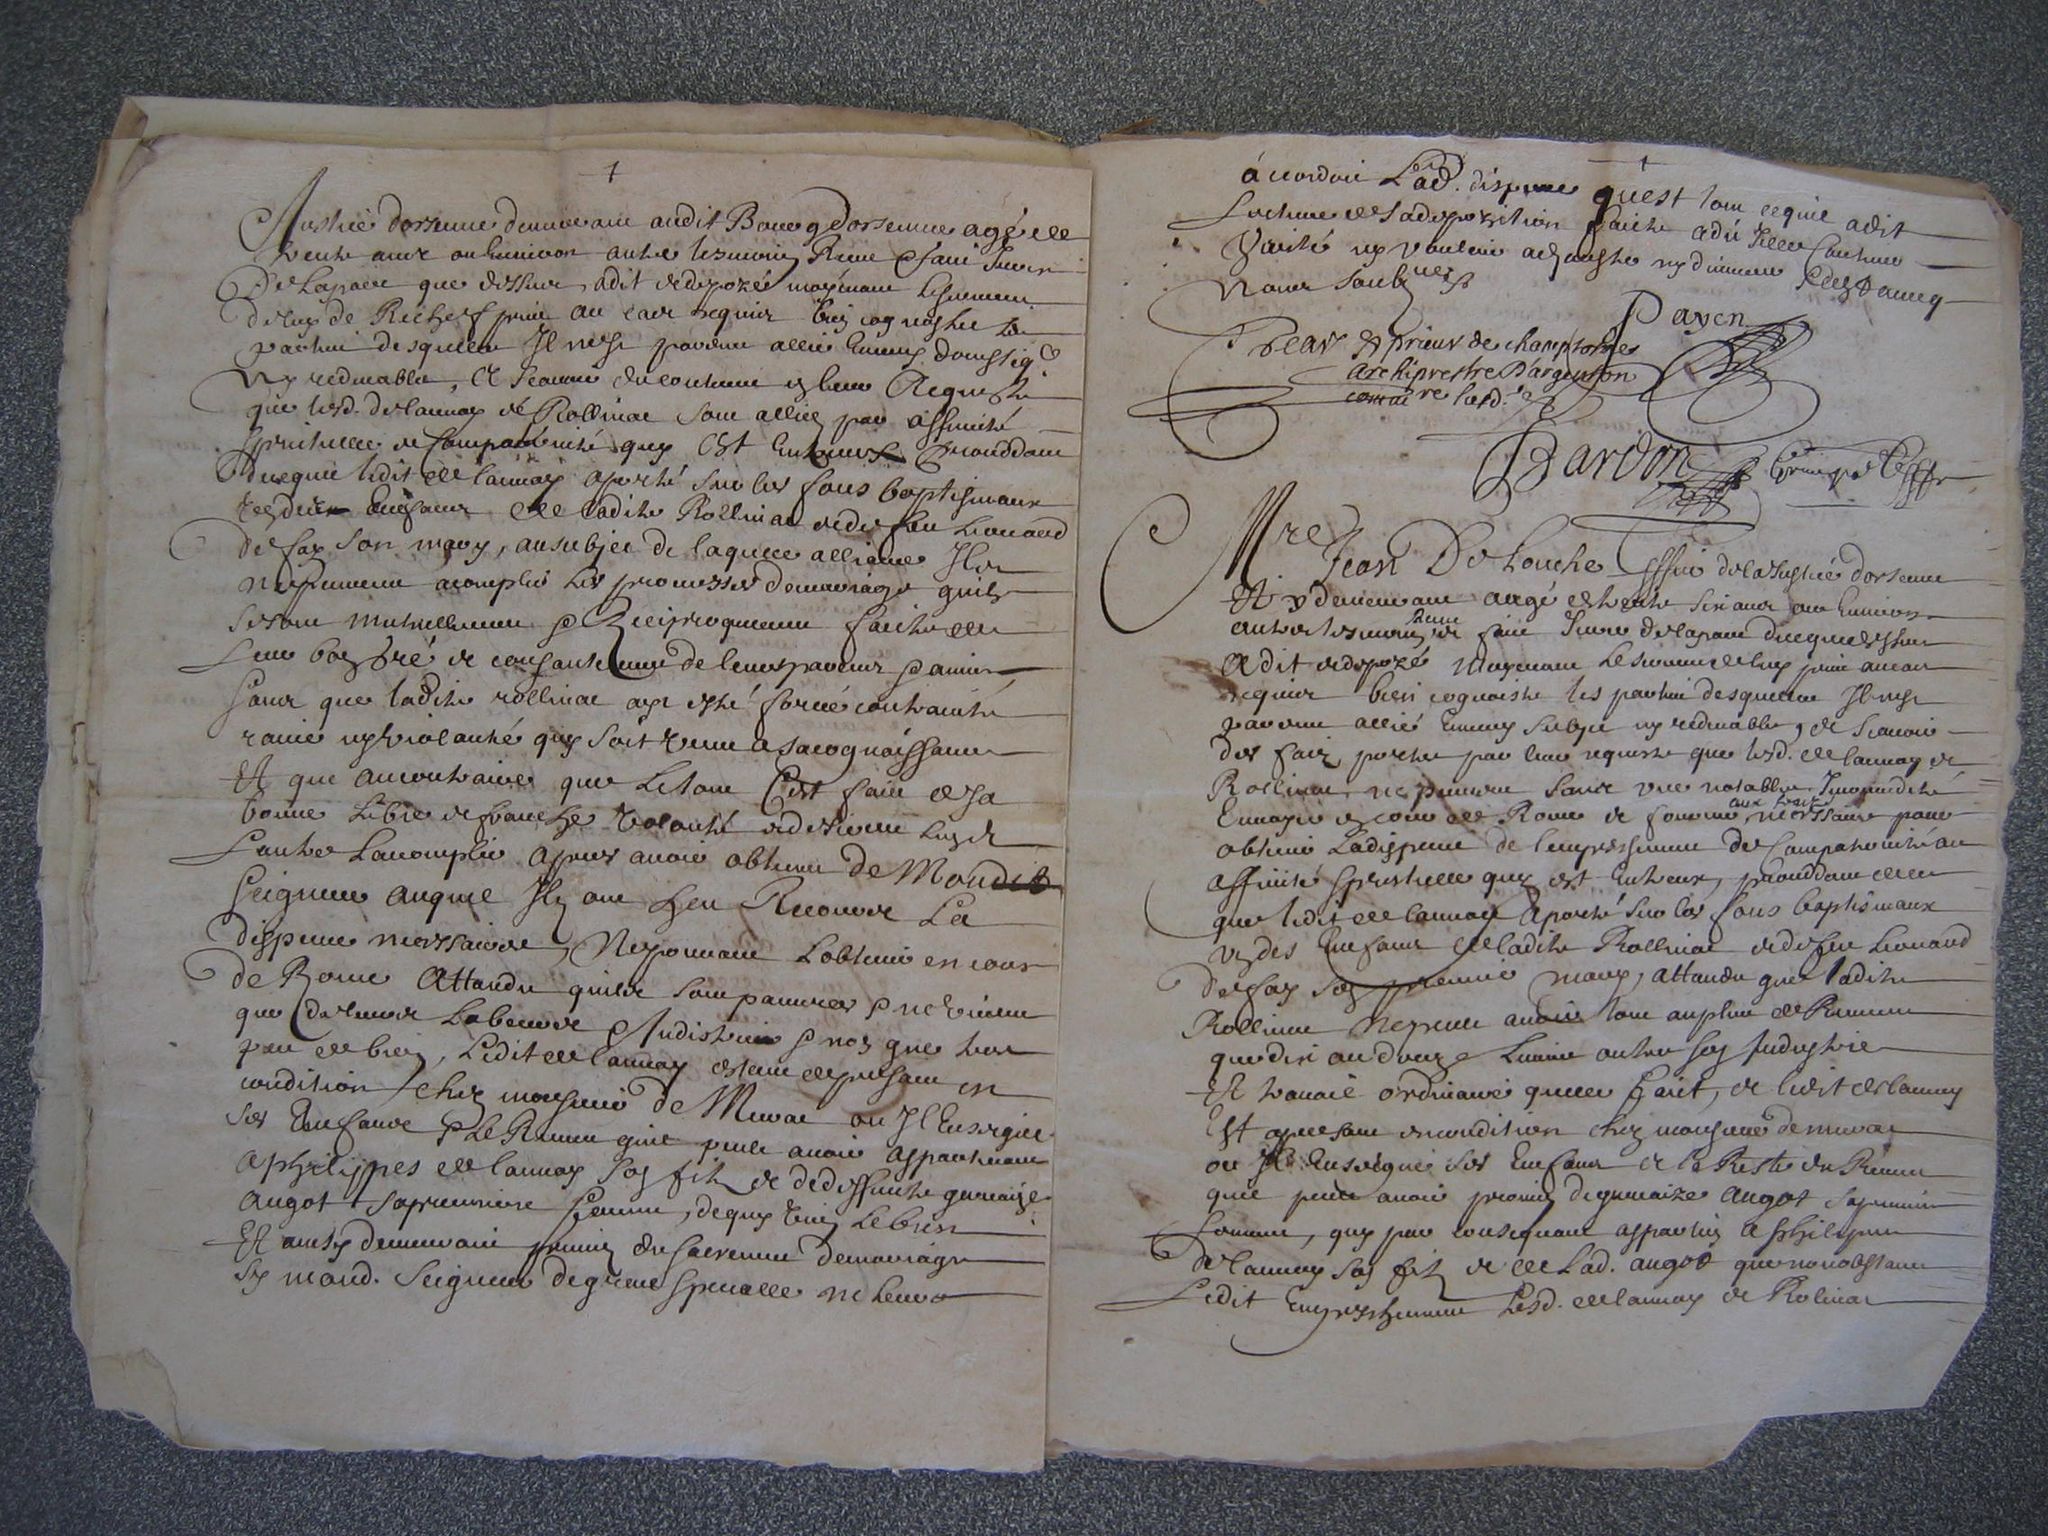 Justice dorsenne demeurant audit Bourg dorsenne agé de
trente ans ou Environ autre tesmoing Reçeu & faict Jurer
De la part que dessus, a dit et depozé moyenant le serment
de luy de Rechef prins au cas requis bien cognoistre les
parties desquelles Il n'est parent allié Ennemy domestiq.
ny redevable, et scavoir du contenu en leur Requeste
que lesd. delaunay et Rollinat sont alliez par affinité
spirituelle de Compaternité quy Est Entreux proceddant
de ce que ledit de launay a porté sur les fons baptismaux
des Enfans de ladite Rollinat et de feu Leonard
de fay son mary, au subject de laquelle alliance Ils
ne peuvent acomplir les promesses de mariage quils
se sont mutuellement & Reciproquement faictes de
Leur bon gré et consantement de leurs parens & amis
sans que ladite rollinat aye esté forcée contrainte
ravie ny violantée quy soit venu a sa cognoissance
Et que au contraire que le tout Cest faict de sa
bonne Libre et franche volonté et desirent lun et
Lautre Lacomplir appres avoir obtenu de Mondit
Seigneur auquel Ilz ont heu Recours La
dispense necessaire, Ne pouvant Lobtenir en cour
de Rome Attandu quils sont pauvres & ne vivent
que de leur Labeur & Industrie & nog que tres
peu de bien, Ledit de launay estant de present en
condition chez monsieur de Muvat ou Il Ensegne
ses Enfans & le Revenu quil peult avoir appartenant
a philippes de launay son fils et de deffuncte gervaize
angot sa premiere femme, de quy vient le bien
Et ainsy demeuroit privez du sacrement de mariage
sy mond. Seigneur de grace specialle ne leur
accordoit Lad. dispense quest tout ce quil a dit
Lecture de sa depozition faicte a dit Icelle Contenir
Verité ny vouloir adjouster ny diminuer
Nous soubz
Payen
prieur de champ
Archiprestre d'argenton
commre susd.
Bardon
Greffier
Mre Jean De Louche Greffier de la Justice dorsenne
Et y demeurant aagé de trente six ans ou Environ
autre tesmoing receu et faict Jurer de la part de ce que dessus
A dit et depozé Moyenant le serment de luy prins au cas
requis bien cognoistre les parties desquelles Il n'est
parent allié Ennemy subject ny redevable, et scavoir
des faicts portez par leur requeste que lesd. de launay et
Rollinat ne peuvent sans une notable Incommodité
Envoyer en cour de Rome et fournir aux frais necessaires pour
obtenir La dispense de lempeschement de Compaternité ou
affinité spirituelle quy est Entreux, procedant de ce
que ledit de launay a porté sur les fons baptismaux
un des Enfans de ladite Rollinat et de feu Leonard
De fay son premier mary, attandu que ladite
Rollinat ne peult avoir tout au plus de Revenu
que dix ou douze Livres outre son Industrie
Et travail ordinaire quelle faict, et ledit de launay
Est a present en condition chez monsieur de muvat
ou Il Enseigne ses Enfans et le Reste du Revenu
quil peult avoir provient de gervaize angot sa premiere
femme, quy par consequant appartient a philippes
de launay son fils et de Lad. angot que nonobstant
Ledit Empeschement Lesd. de launay et Rolinat